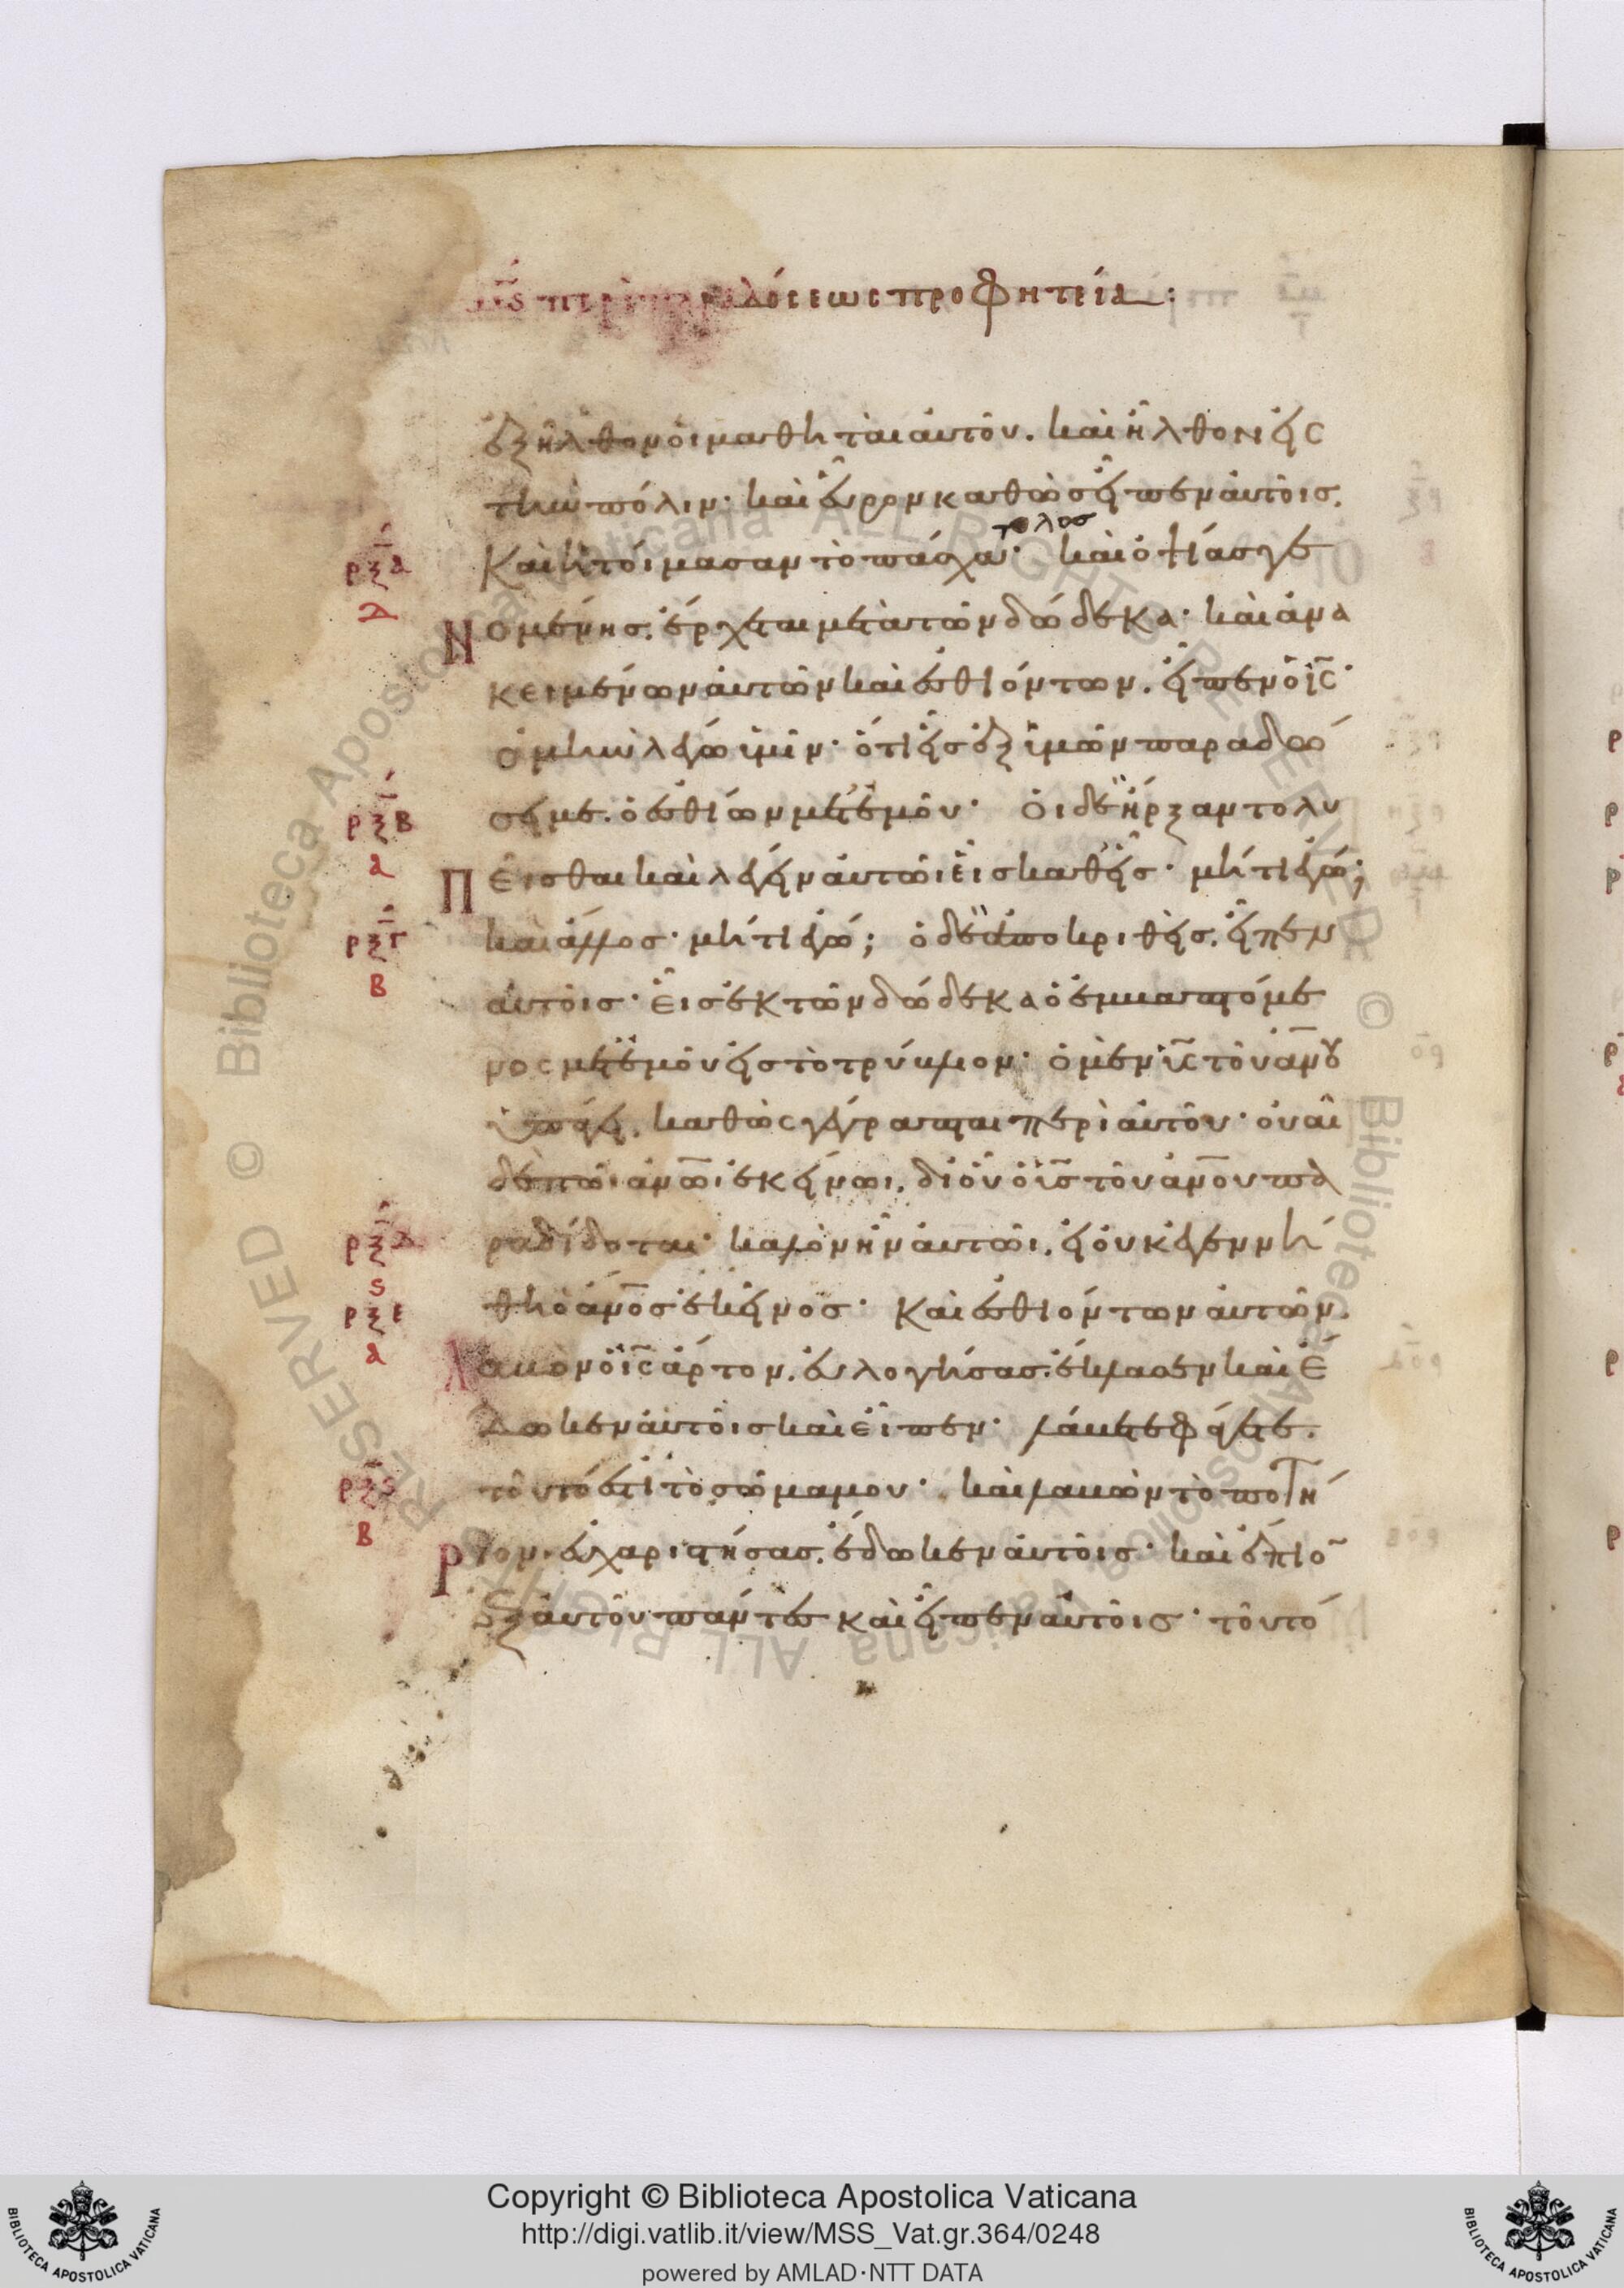 παραδόσεως προφητεία:
ἐξῆλθον οἱ μαθηταὶ αὐτοῦ. καὶ ἦλθον εἰς
τὴν πόλιν· καὶ εὗρον καθὼς εἶπεν αὐτοῖς.
τέλος
ρξα Καὶ ἡτοίμασαν τὸ πάσχα· καὶ ὀψίας γε
δ
Νομένης. ἔρχεται μετὰ τῶν δώδεκα· καὶ ἀνα
κειμένων αὐτῶν καὶ ἐσθιόντων. εἶπεν ὁ ις·
ἀμὴν λέγω ὑμῖν· ὅτι εἷς ἐξ ὑμῶν παραδώ
ρξβ σει με. ὁ ἐσθίων μετ' ἐμοῦ· οἱ δὲ ἤρξαντο λυ
α
Πεῖσθαι καὶ λέγειν αὐτῶι εἷς καθ' εἷς· μήτι ἐγώ;
ρξγ καὶ ἄλλος· μήτι ἐγώ; ὁ δὲ ἀποκριθεὶς. εἶπεν
β
αὐτοῖς· εἷς ἐκ τῶν δώδεκα ὁ ἐμβαπτόμε
νος μετ' ἐμοῦ εἰς τὸ τρύβλιον· ὁ μὲν υς τοῦ ανου
ὑπάγει. καθὼς γέγραπται περὶ αὐτοῦ· οὐαὶ
δὲ τῶι ανωι ἐκείνωι. δι' οὗ ὁ υς τοῦ ανου πα
ρξδ ραδίδοται· καλὸν ἦν αὐτῶι. εἰ οὐκ ἐγεννή
ς
ρξε θη ὁ ανος ἐκεῖνος· Καὶ ἐσθιόντων αὐτῶν.
α
Λαβὼν ὁ ις ἄρτον. εὐλογήσας. ἔκλασεν καὶ ἔ
δωκεν αὐτοῖς καὶ εἶπεν· λάβετε φάγετε.
ρξς τοῦτό ἐστι τὸ σῶμά μου· καὶ λαβὼν τὸ ποτή
β
Ριον. εὐχαριστήσας. ἔδωκεν αὐτοῖς· καὶ ἔπιον
ἐξ αὐτοῦ πάντες καὶ εἶπεν αὐτοῖς· τοῦτό
Copyright © Biblioteca Apostolica Vaticana
http://digi.vatlib.it/view/MSS_Vat.gr.364/0248
powered by AMLAD·NTT DATA
BIBLIOTECA APOSTOLICA VATICANA
BIBLIOTECA APOSTOLICA VATICANA